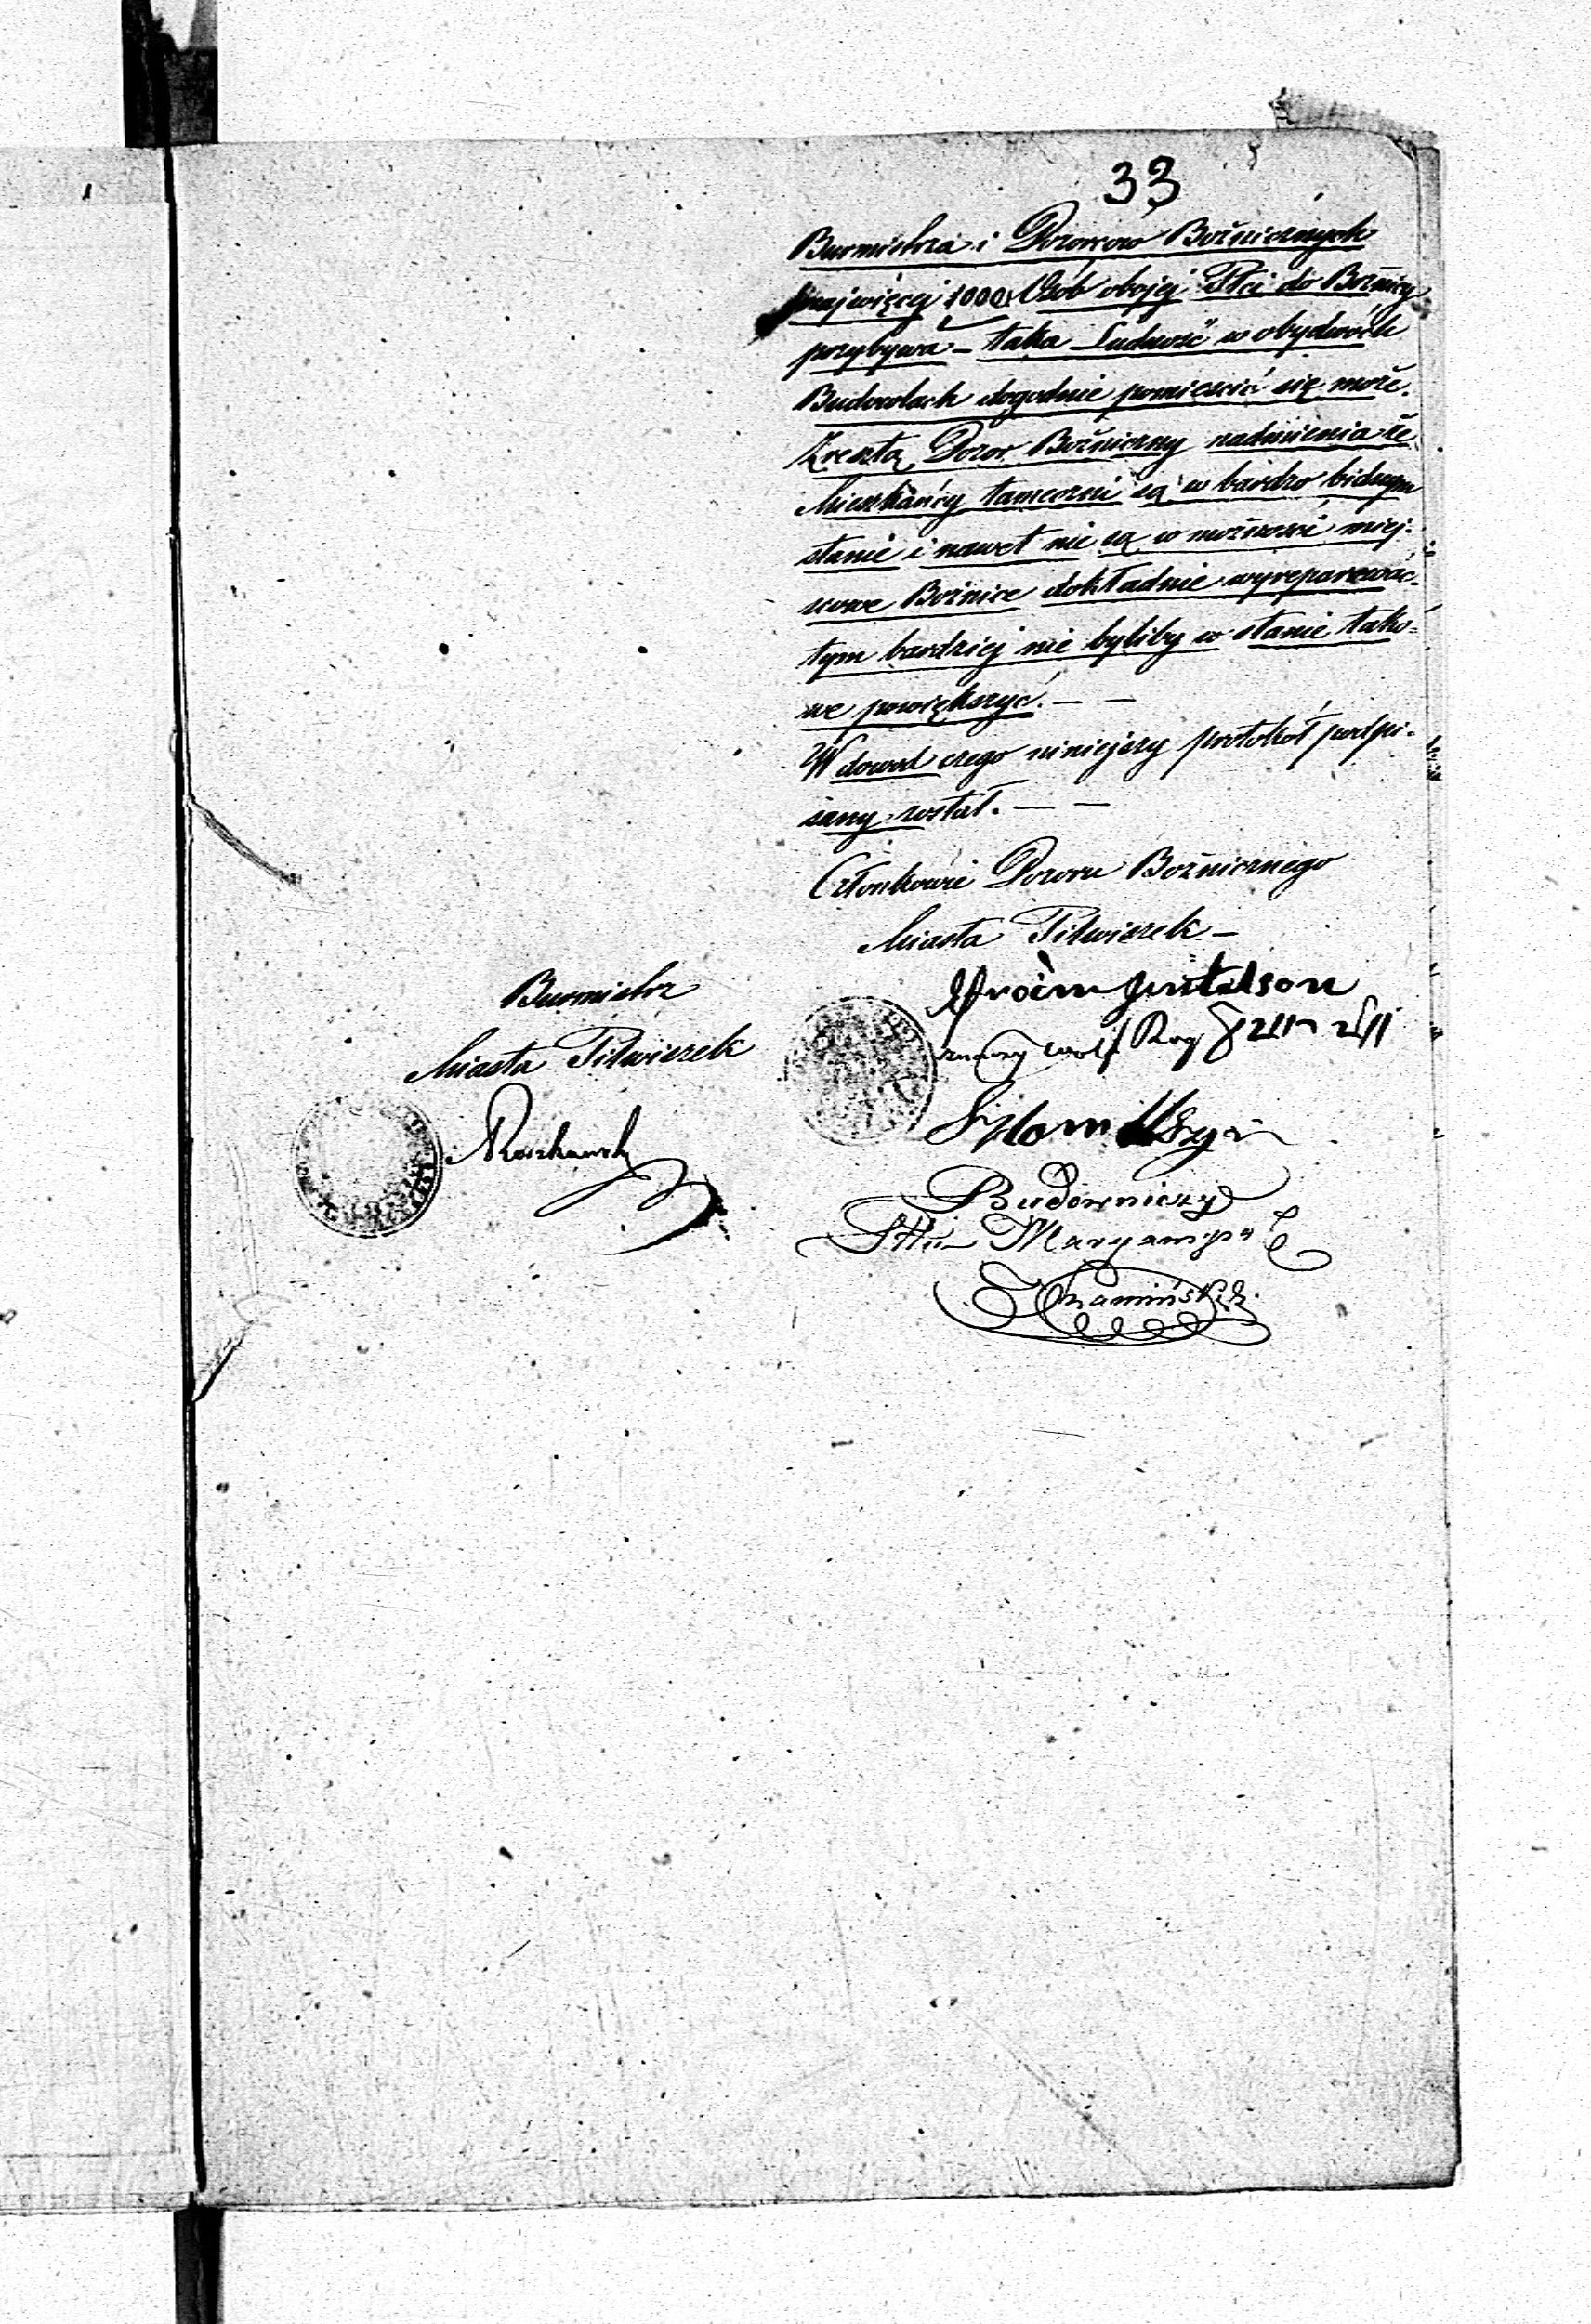 33
Burmistrza i Dozorców Bożnicznych
najwięcej 1000 Osób obojej Płci do Bożnicy
przybywa – taka Ludność w obydwóch
Budowlach dogodnie pomieścić się może.
Zresztą Dozor Bożniczny nadmienia że
Mieszkańcy tameczni są w bardzo bidnym
stanie i nawet nie są w możności miej-
scowe Bożnice dokładnie wyreparować
tym bardziej nie byliby w stanie tako=
we powiększyć. — —
W dowód czego niniejszy protokół podpi-
sany został. — —
Członkowie Dozoru Bożnicznego
Miasta Pilwiszek –
Burmistrz
Miasta Pilwiszek
Roszkowski
Budowniczy
Maryamp
Kamiński